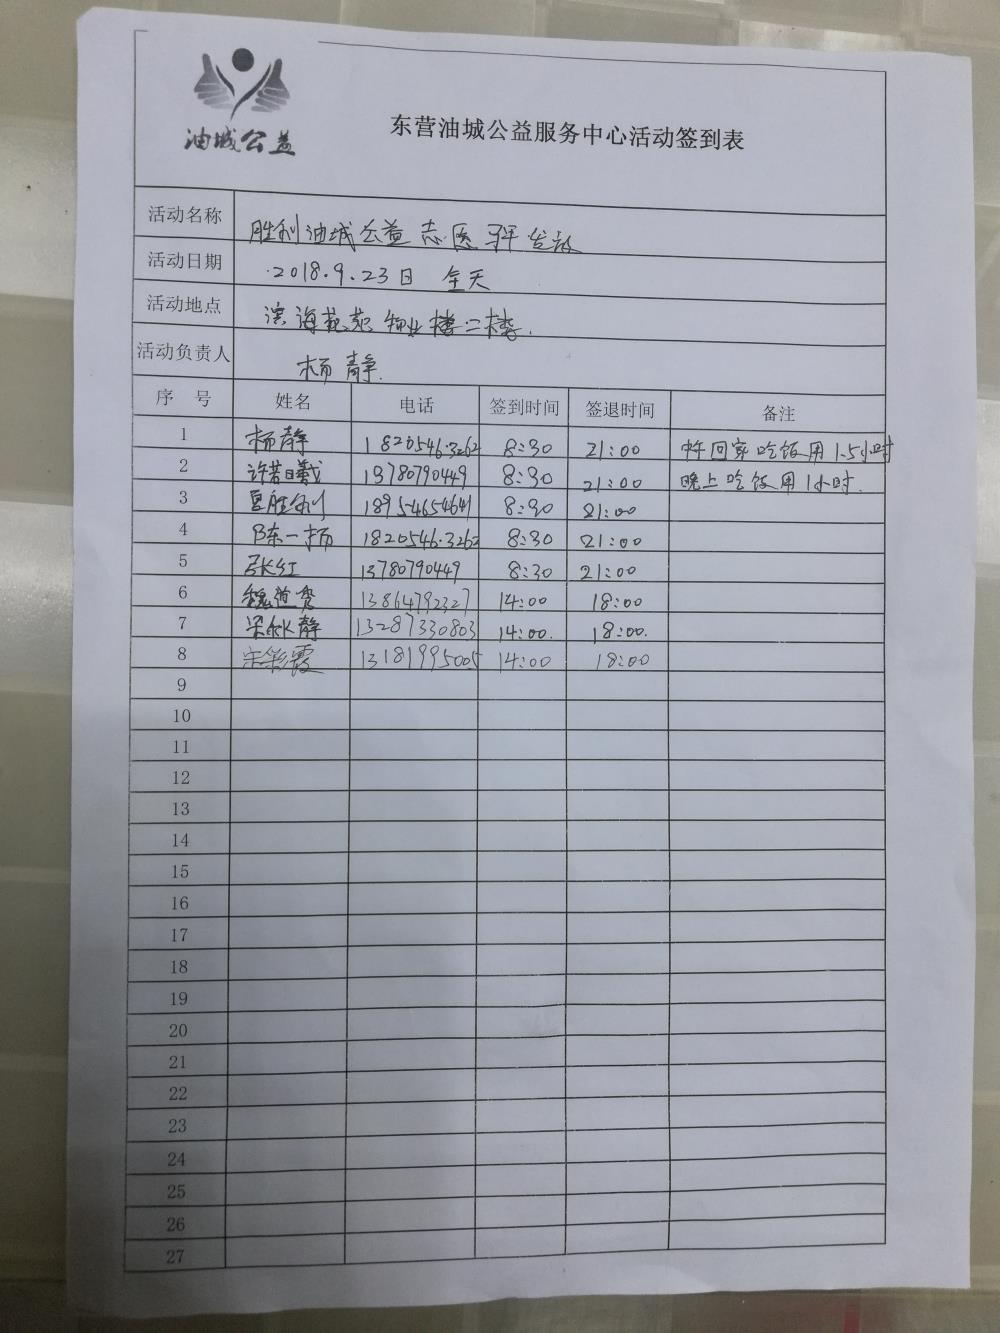 油城公益
东营油城公益服务中心活动签到表
活动名称 胜利油城公益志愿 发放
活动日期 2018.9.23日 全天
活动地点 滨海 苑 物业楼二楼.
活动负责人 杨静.
序 号 姓名 电话 签到时间 签退时间 备注
1 杨静 18205463262 8:30 21:00 中午回家吃饭用1.5小时
2 许若曦 13780790449 8:30 21:00 晚上吃饭用1小时.
3 胜利 18954654641 8:30 21:00
4 陈一杨 18205463262 8:30 21:00
5 张红 13780790449 8:30 21:00
6 魏道 13864792327 14:00 18:00
7 梁秋静 13287330803 14:00. 18:00.
8 宋彩霞 13181995005 14:00 18:00
9
10
11
12
13
14
15
16
17
18
19
20
21
22
23
24
25
26
27